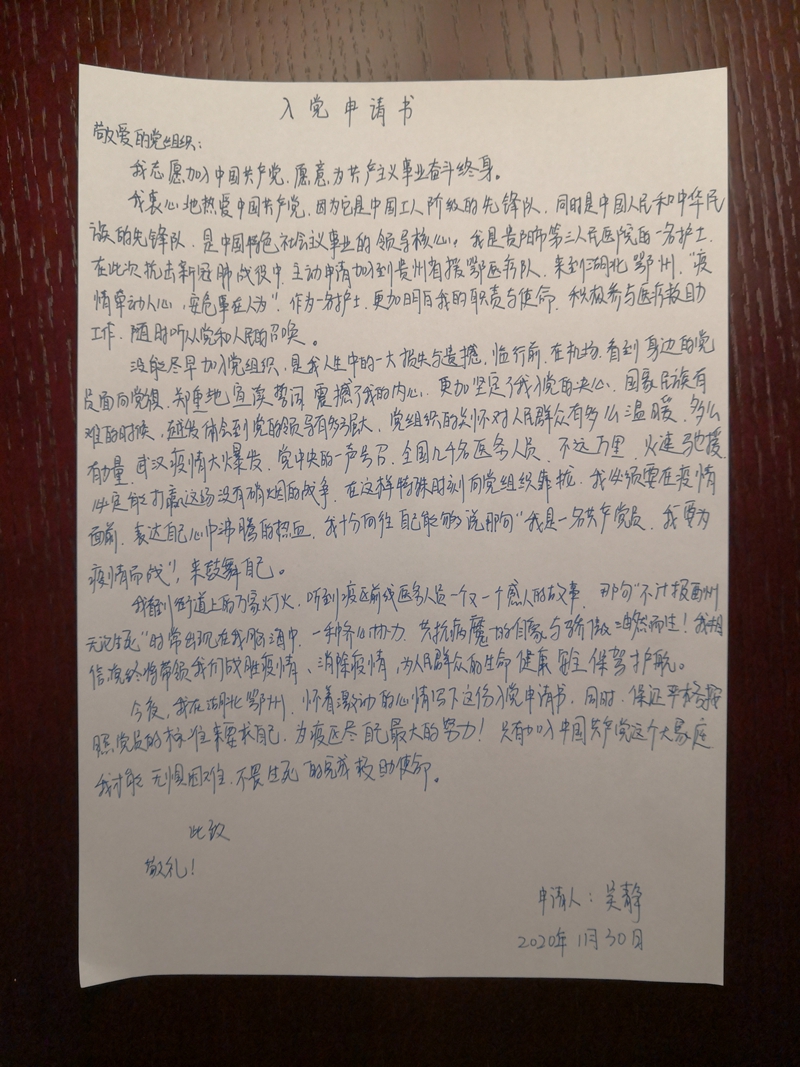 入党申请书
敬爱的党组织:
我志愿加入中国共产党,愿意为共产主义事业奋斗终身。
我衷心地热爱中国共产党,因为它是中国工人阶级的先锋队,同时是中国人民和中华民
族的先锋队,是中国特色社会主义事业的领导核心。我是贵阳市第三人民医院的一名护士,
在此次抗击新冠肺战役中,主动申请加入到贵州省援鄂医疗队,来到湖北鄂州,“疫
情牵动人心,安危事在人为”,作为一名护士,更加明白我的职责与使命,积极参与医疗救助
工作,随时听从党和人民的召唤。
没能尽早加入党组织,是我人生中的一大损失与遗憾,临行前,在机场,看到身边的党
员面向党旗,郑重地宣读誓词,震撼了我的内心,更加坚定了我入党的决心,国家民族有
难的时候,越发体会到党的领导有多强大,党组织的关怀对人民群众有多么温暖,多么
有力量,武汉疫情大爆发,党中央的一声号召,全国几千名医务人员,不远万里,火速驰援,
一定能打赢这场没有硝烟的战争,在这样特殊时刻向党组织靠拢,我必须要在疫情
面前,表达自己心中沸腾的热血,我十分向往自己能够说那句“我是一名共产党员,我要为
疫情而战”,来鼓舞自己。
我看到街道上的万家灯火,听到疫区前线医务人员一个又一个感人的故事,那句“不计报酬
无论生死”的常出现在我脑海中,一种齐心协力,共抗病魔的自豪与骄傲油然而生!我相
信党终将带领我们战胜疫情、消除疫情,为人民群众的生命健康安全保驾护航。
今夜,我在湖北鄂州,怀着激动的心情写下这份入党申请书,同时,保证严格按
照党员的标准来要求自己,为疫区尽自己最大的努力!只有加入中国共产党这个大家庭,
我才能无惧困难,不畏生死的完成救助使命。
此致
敬礼!
申请人:吴静
2020年1月30日